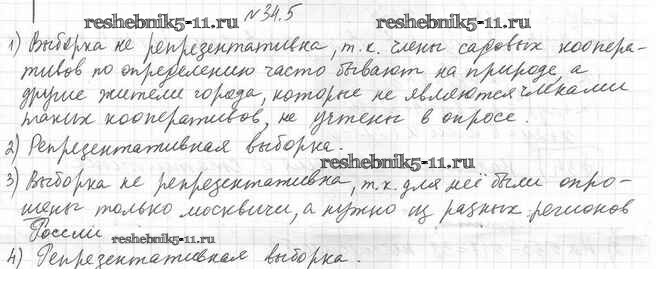 reshebnik5-11.ru №34.5
1) Выборка не репрезентативна, т.к. члены садовых коопера-
тивов по определению часто бывают на природе, а
другие жители города, которые не являются членами
таких кооперативов, не учтены в опросе.
2) Репрезентативная выборка.
reshebnik5-11.ru
3) Выборка не репрезентативна, т.к. для неё были опро-
шены только москвичи, а нужно из разных регионов
России
reshebnik5-11.ru
4) Репрезентативная выборка.